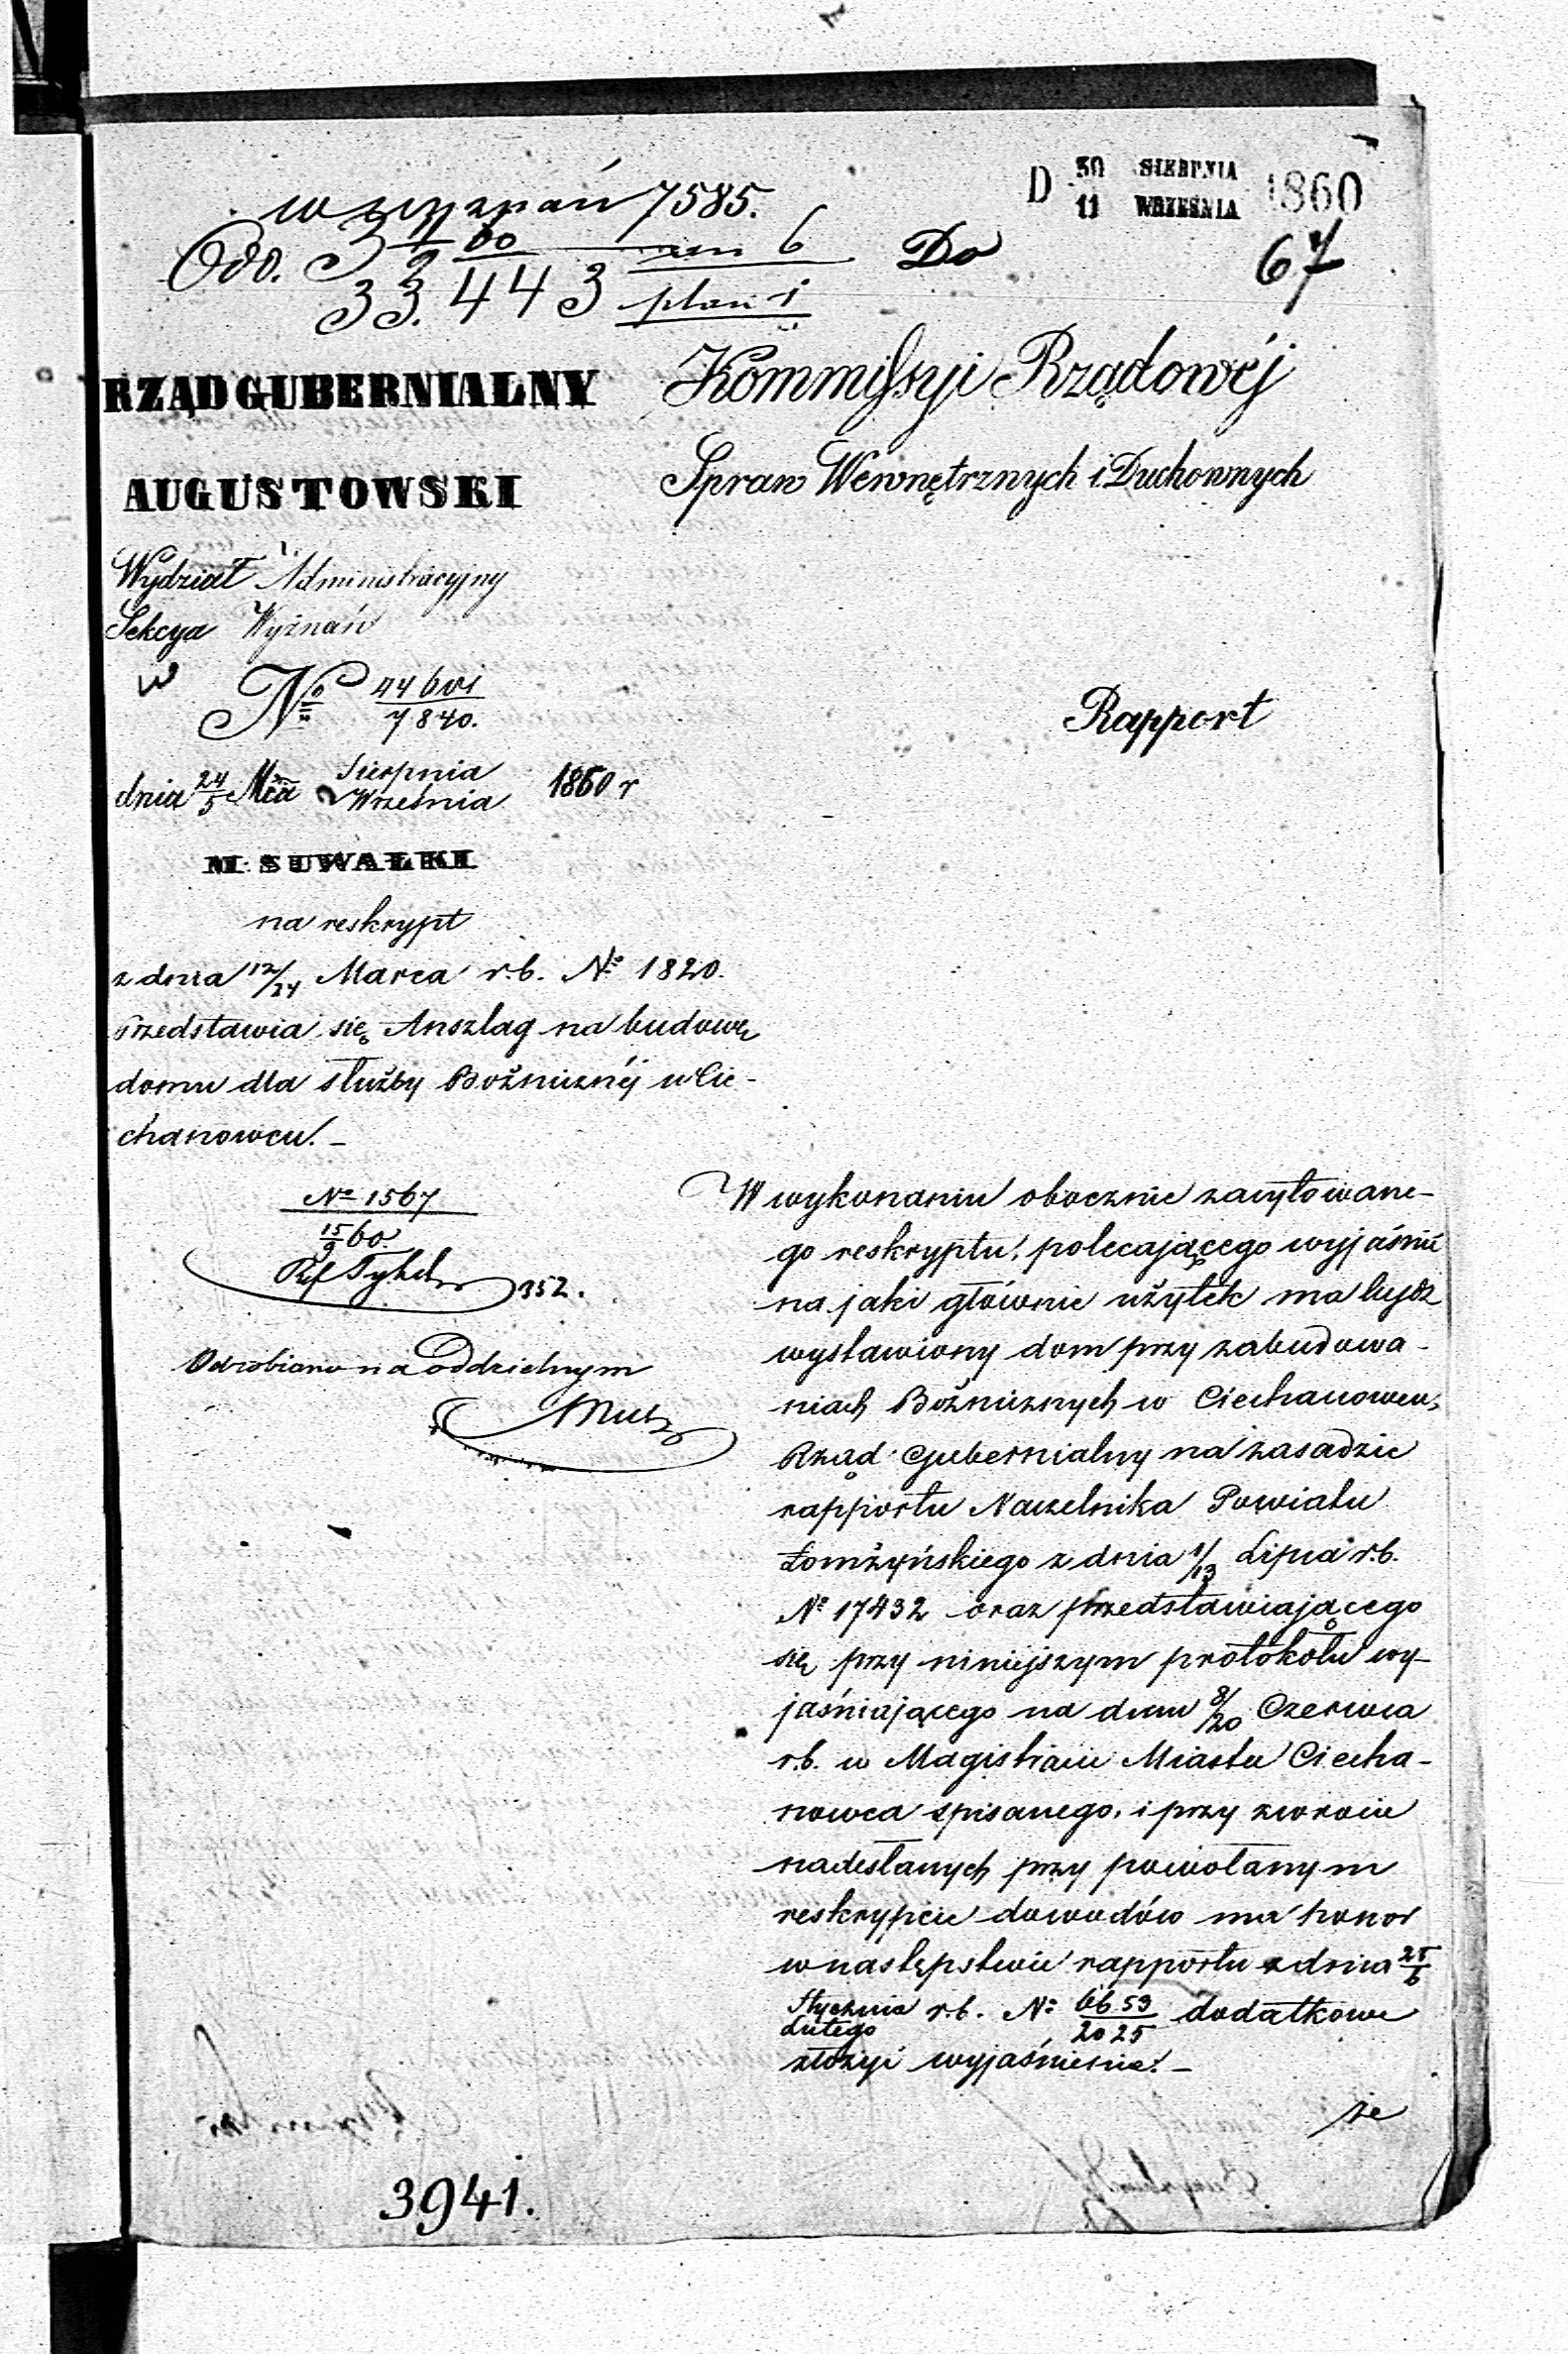 D 30 SIERPNIA 1860
11 WRZEŚNIA
w wyznań 7585.
67
Odd. 3
33.443 plan 1
Do
RZĄD GUBERNIALNY
AUGUSTOWSKI
Kommissyi Rządowéj
Spraw Wewnętrznych i Duchownych
Wydział Administracyjny
Sekcya Wyznań
w
No 44601
7840.
Rapport
dnia 24/5 Mca Sierpnia
Września 1860 r
M. SUWAŁKI
na reskrypt
z dnia 12/24 Marca r.b. No 1820.
Przedstawia się Anszlag na budowę
domu dla służby Bożnicznéj w Cie-
chanowcu. –
No 1567
15/9 60.
352.
Odrobiono na oddzielnym
W wykonaniu obocznie zacytowane-
go reskryptu, polecającego wyjaśnić
na jaki głównie użytek ma bydź
wystawiony dom przy zabudowa-
niach Bożnicznych w Ciechanowcu,
Rząd Gubernialny na zasadzie
rapportu Naczelnika Powiatu
Łomżyńskiego z dnia 1/13 Lipca r.b.
No 17432 oraz przedstawiającego
się przy niniejszym protokołu wy-
jaśniającego na dniu 8/20 Czerwca
r.b. w Magistracie Miasta Ciecha-
nowca spisanego, i przy zwrocie
nadesłanych przy powołanym
reskrypcie dowodów ma honor
w następstwie rapportu z dnia 25/6
Stycznia
Lutego r.b. No 6653/2025 dodatkowe
złożyć wyjaśnienie. –
że
3941.